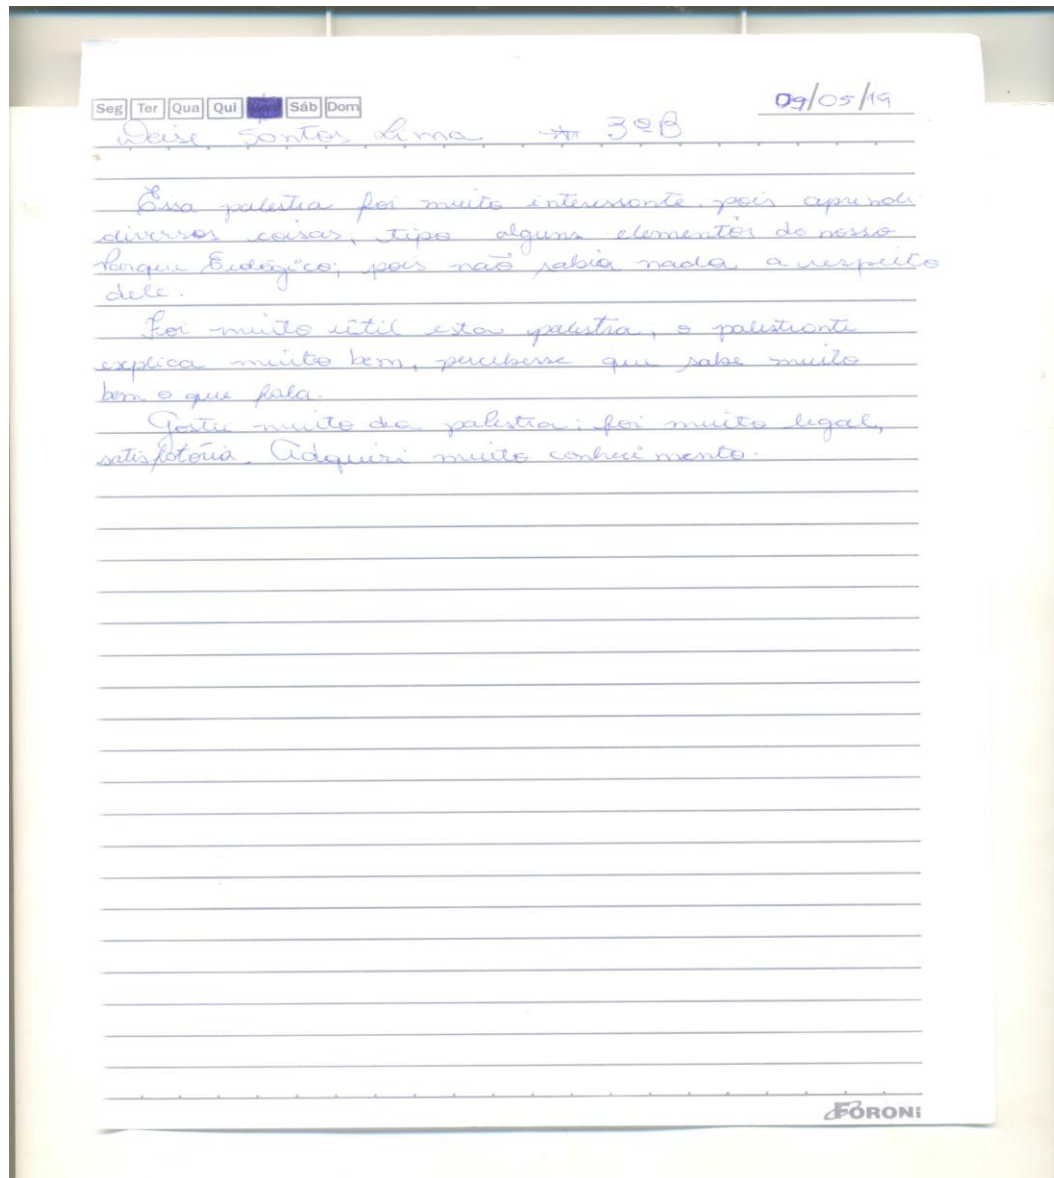 Seg Ter Qua Qui Sáb Dom
09/05/19
Deise Santos Lima * 3ºB
Essa palestra foi muito interessante pois aprendi
diversos coisas, tipo alguns elementos do nosso
Parque Ecológico; pois não sabia nada a respeito
dele.
Foi muito útil esta palestra, o palestrante
explica muito bem, percebesse que sabe muito
bem o que fala.
Gostei muito da palestra; foi muito legal,
satisfatória. Adquiri muito conhecimento.
FORONI